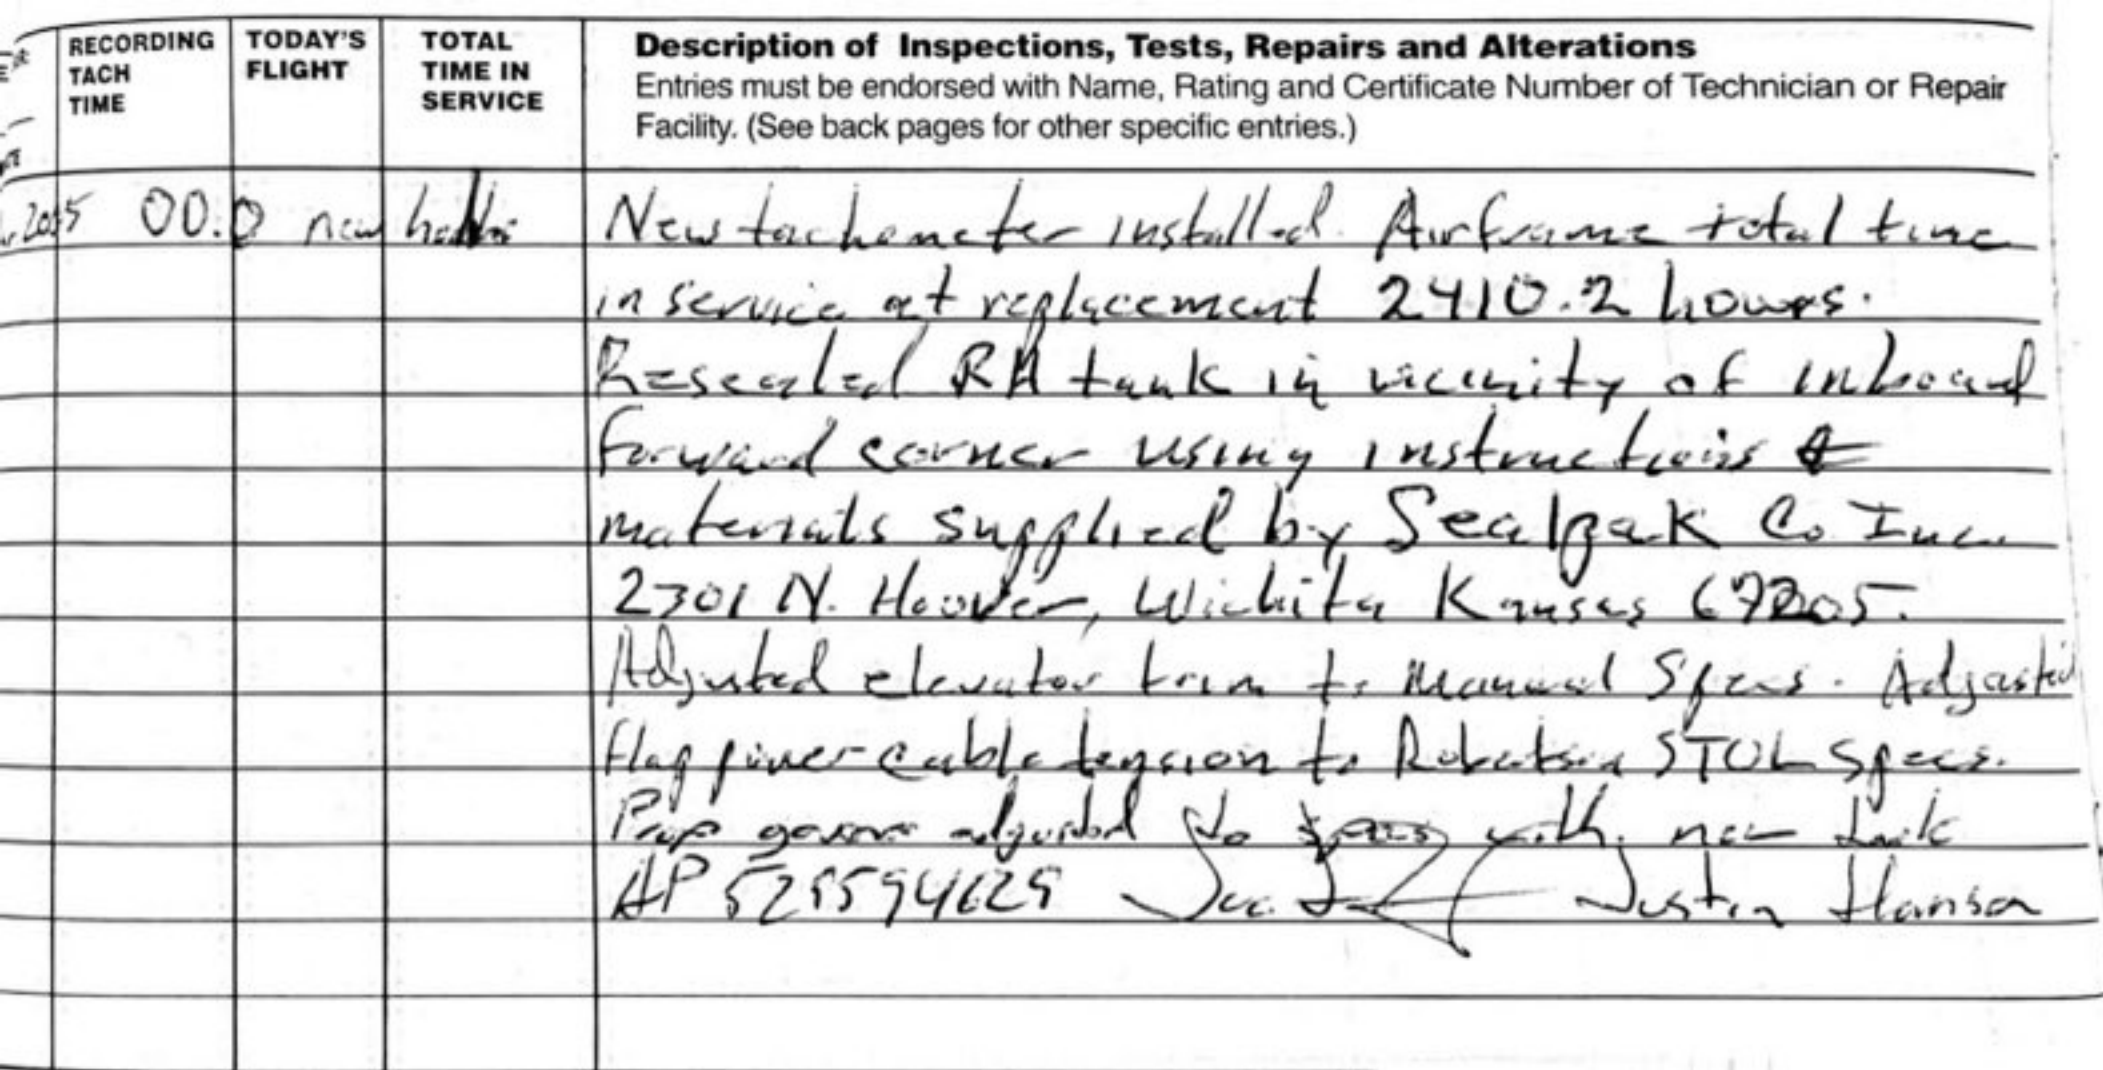 RECORDING TACH TIME
TODAY'S FLIGHT
TOTAL TIME IN SERVICE
Description of Inspections, Tests, Repairs and Alterations
Entries must be endorsed with Name, Rating and Certificate Number of Technician or Repair
Facility. (See back pages for other specific entries.)
00.0 new New tachometer installed. Airframe total time
in service at replacement 2410.2 hours.
Resealed RH tank in vicinity of inboard
forward corner using instructions &
materials supplied by Sealpak Co Inc.
2301 N. Hoover, Wichita Kansas 67205.
Adjusted elevator trim to Manual Specs. Adjusted
flap cable tension to Robertson STOL Specs.
Prop governor adjusted to specs with new
AP Justin Hanson